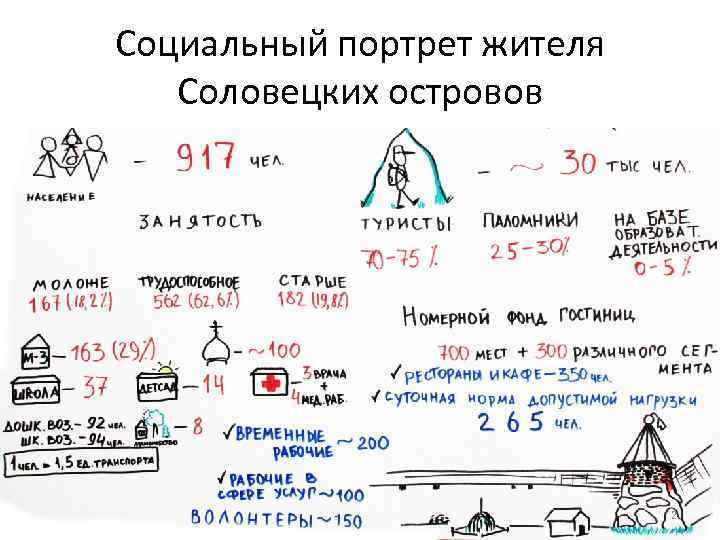 Социальный портрет жителя
Соловецких островов
– 917 чел.
НАСЕЛЕНИЕ
ЗАНЯТОСТЬ
МОЛОЖЕ
167 (18,2%)
ТРУДОСПОСОБНОЕ
562 (62,6%)
СТАРШЕ
182 (19,8%)
М-З – 163 (29%)
– ~100
ШКОЛА – 37
ДЕТСАД – 14
– 3 ВРАЧА
+
4 МЕД. РАБ.
ДОШК. ВОЗ. – 92 чел.
ШК. ВОЗ. – 94 чел.
– 8
1 ЧЕЛ. = 1,5 ЕД. ТРАНСПОРТА
✓ ВРЕМЕННЫЕ
РАБОЧИЕ ~ 200
✓ РАБОЧИЕ В
СФЕРЕ УСЛУГ ~ 100
ВОЛОНТЕРЫ ~ 150
– ~ 30 ТЫС ЧЕЛ.
ТУРИСТЫ
70-75 %
ПАЛОМНИКИ
25-30%
НА БАЗЕ
ОБРАЗОВАТ.
ДЕЯТЕЛЬНОСТИ
0-5 %
НОМЕРНОЙ ФОНД ГОСТИНИЦ
700 МЕСТ + 300 РАЗЛИЧНОГО СЕГ-
МЕНТА
✓ РЕСТОРАНЫ И КАФЕ – 350 чел.
✓ СУТОЧНАЯ НОРМА ДОПУСТИМОЙ НАГРУЗКИ
265 ЧЕЛ.